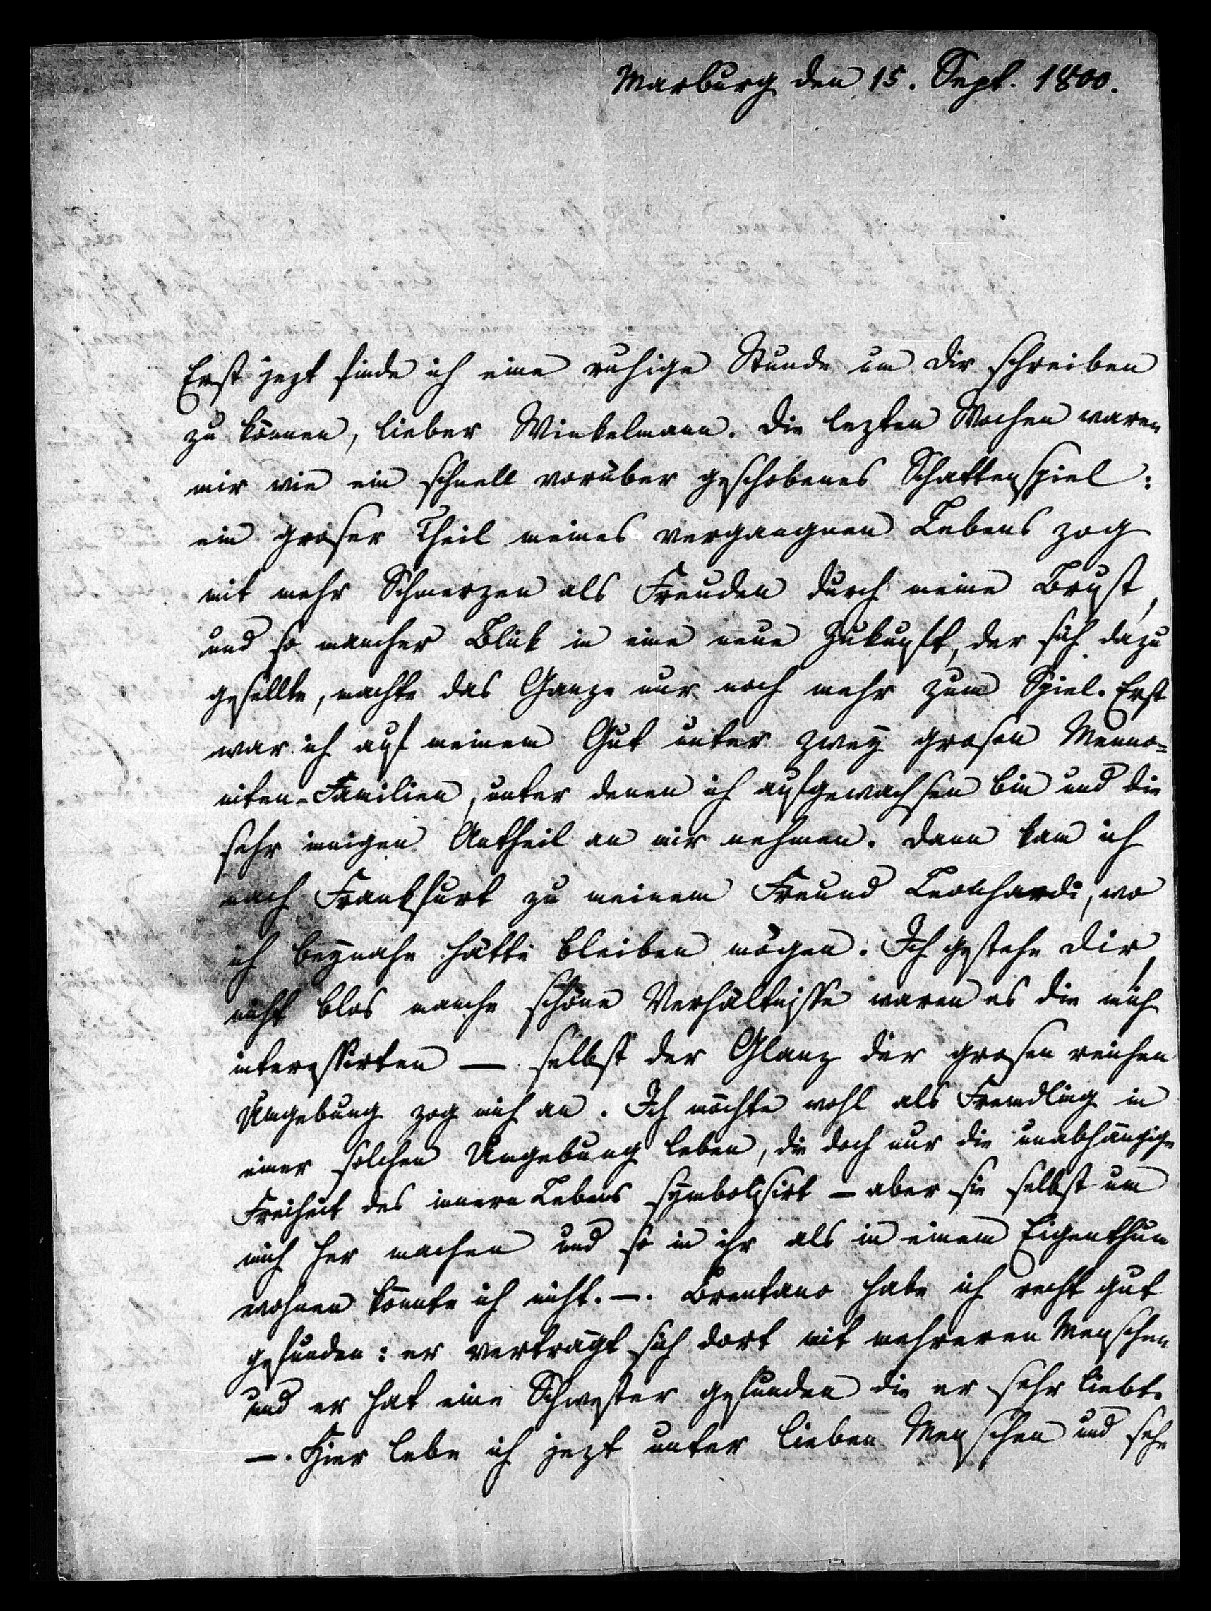 Marburg den 15. Sept. 1800.
Erst jezt finde ich eine ruhige Stunde um dir schreiben
zu können, lieber Winkelmann. Die lezten Wochen waren
mir wie ein schnell vorüber geschobenes Schattenspiel:
ein groser Theil meines vergangnen Lebens zog
mit mehr Schmerzen als Freuden durch meine Brust,
und so mancher Blick in eine neue Zukunft, der sich dazu
gesellte, machte das Ganze nur noch mehr zum Spiel. Erst
war ich auf meinem Gut unter zwey grosen Menno=
niten-Familien, unter denen ich aufgewachsen bin und die
sehr innigen Antheil an mir nehmen. Dann kam ich
nach Frankfurt zu meinem Freund Leonhardi, wo
ich beynahe hätte bleiben mögen. Ich gestehe dir,
nicht blos manche schöne Verhältnisse waren es die mich
interessirten — selbst der Glanz der grosen reichen
Umgebung zog mich an. Ich möchte wohl als Fremdling in
einer solchen Umgebung leben, die doch nur die unabhängige
Freiheit des innern Lebens symbolisirt — aber sie selbst um
mich her machen und so in ihr als in einem Eigenthum
wohnen könnte ich nicht. —. Brentano habe ich recht gut
gefunden: er verträgt sich dort mit mehreren Menschen
und er hat eine Schwester gefunden die er sehr liebt.
—. Hier lebe ich jezt unter lieben Menschen und sehr